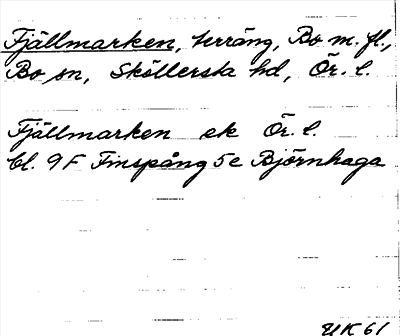 Fjällmarken, terräng, Bo m. fl.,
Bo sn, Sköllersta hd, Ör. l.
Fjällmarken ek Ör. l.
bl. 9 F Finspång 5 e Björnhaga
UK 61